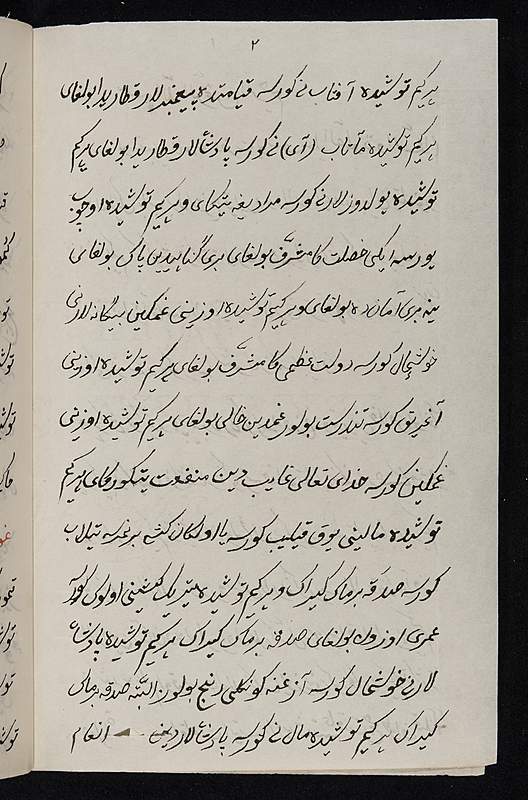 ۲
هر کیم توشیده آفتاب نی کورسه قیامتده پیغمبرلار قطاریدا بولغای
هر کیم توشیده ماتاب (آی) نی کورسه پادشالار قطاریدا بولغای هر کیم
توشیده یولدوزلارنی کورسه مرادیغه یتکای و هر کیم توشیده اوچوب
یورسه ایکی خصلت کا مشرف بولغای بری گناهیدین پاک بولغای
ینه بری آمان ده بولغای و هر کیم توشیده اوزینی غمکین بیگانه لارنی
خوشحال کورسه دولت عظیمی کا مشرف بولغای هر کیم توشیده اوزینی
آغریق کورسه تندرست بولور غمدین خالی بولغای هر کیم توشیده اوزینی
غمکین کورسه خدای تعالی غایب دین منفعت یتکورکای هر کیم
توشیده مالینی یوق قیلیب کورسه یا اولکان کشی بر نرسه تیلاب
کورسه صدقه برماک کیراک و هر کیم توشیده تیریک کیشینی اولوک کورسه
عمری اوزون بولغای صدقه برماک کیراک هر کیم توشیده پادشا
لارنی خوشحال کورسه آز غنه کونکلی رنج بولور البته صدقه برماک
کیراک هر کیم توشیده مال نی کورسه پادشالاردین انعام